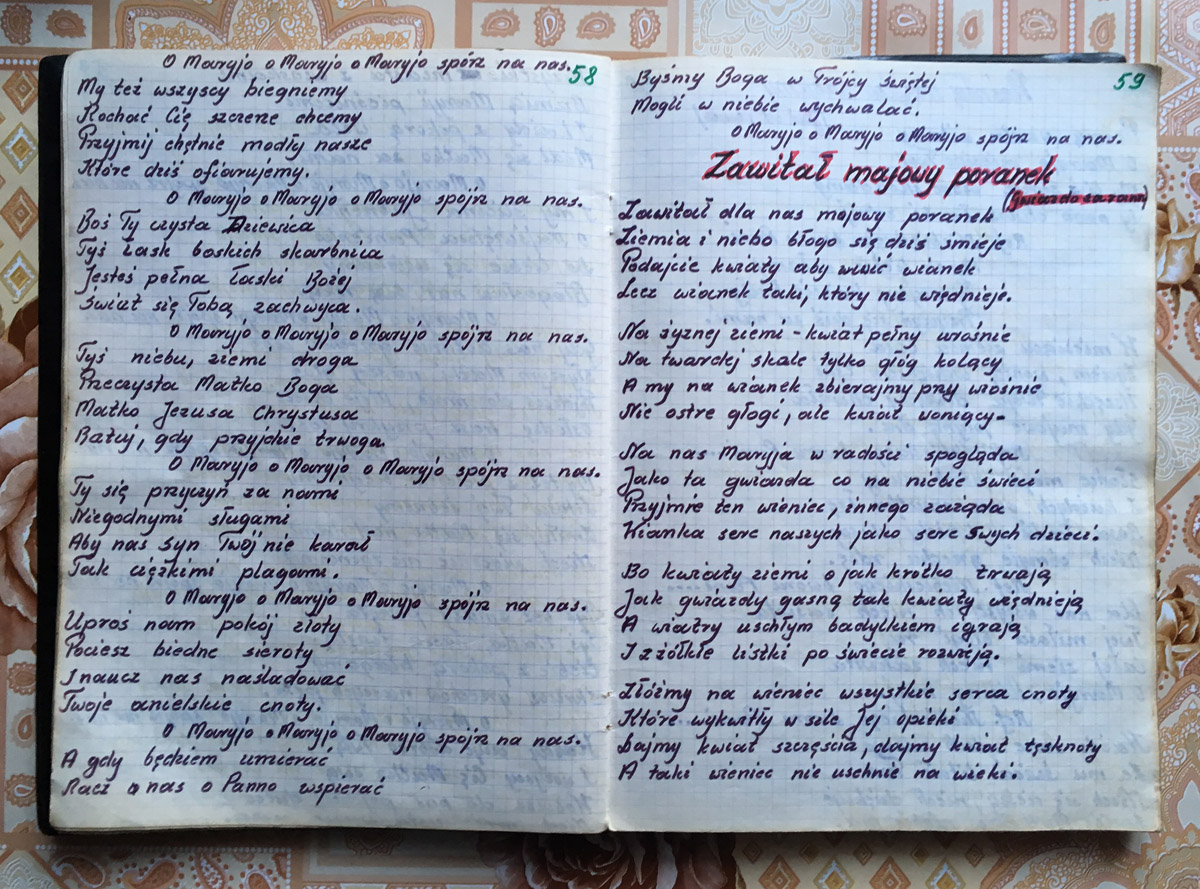 O Maryjo o Maryjo o Maryjo spójrz na nas.
58
My też wszyscy biegniemy
Kochać Cię szczerze chcemy
Przyjmij chętnie modły nasze
Które dziś ofiarujemy.
O Maryjo o Maryjo o Maryjo spójrz na nas.
Boś Ty czysta Dziewica
Tyś Łask boskich skarbnica
Jesteś pełna Łaski Bożej
Świat się Tobą zachwyca.
O Maryjo o Maryjo o Maryjo spójrz na nas.
Tyś niebu, ziemi droga
Przeczysta Matko Boga
Matko Jezusa Chrystusa
Ratuj, gdy przyjdzie trwoga
O Maryjo o Maryjo o Maryjo spójrz na nas.
Ty się przyczyń za nami
Niegodnymi sługami
Aby nas Syn Twój nie karał
Tak ciężkimi plagami.
O Maryjo o Maryjo o Maryjo spójrz na nas.
Uproś nam pokój złoty
Pociesz biedne sieroty
I naucz nas naśladować
Twoje anielskie cnoty.
O Maryjo o Maryjo o Maryjo spójrz na nas.
A gdy będziem umierać
Racz nas o Panno wspierać
59
Byśmy Boga w Trójcy świętej
Mogli w niebie wychwalać.
O Maryjo o Maryjo o Maryjo spójrz na nas.
Zawitał majowy poranek
(Gwiazdo zaranna)
Zawitał dla nas majowy poranek
Ziemia i niebo błogo się dziś śmieje
Podajcie kwiaty aby uwić wianek
Lecz wianek taki, który nie więdnieje.
Na żyznej ziemi - kwiat pełny urośnie
Na twardej skale tylko głóg kolący
A my na wianek zbierajmy przy wiośnie
Nie ostre głogi, ale kwiat woniący-
Na nas Maryja w radości spogląda
Jako ta gwiazda co na niebie świeci
Przyjmie ten wieniec, innego zażąda
Wianka serc naszych jako serc Swych dzieci.
Bo kwiaty ziemi o jak krótko trwają
Jak gwiazdy gasną tak kwiaty więdnieją
A wiatry uschłym badylkiem igrają
I zżółkłe listki po świecie rozwieją.
Złóżmy na wieniec wszystkie serca cnoty
Które wykwitły w sile Jej opieki
Dajmy kwiat szczęścia, dajmy kwiat tęsknoty
A taki wieniec nie uschnie na wieki.